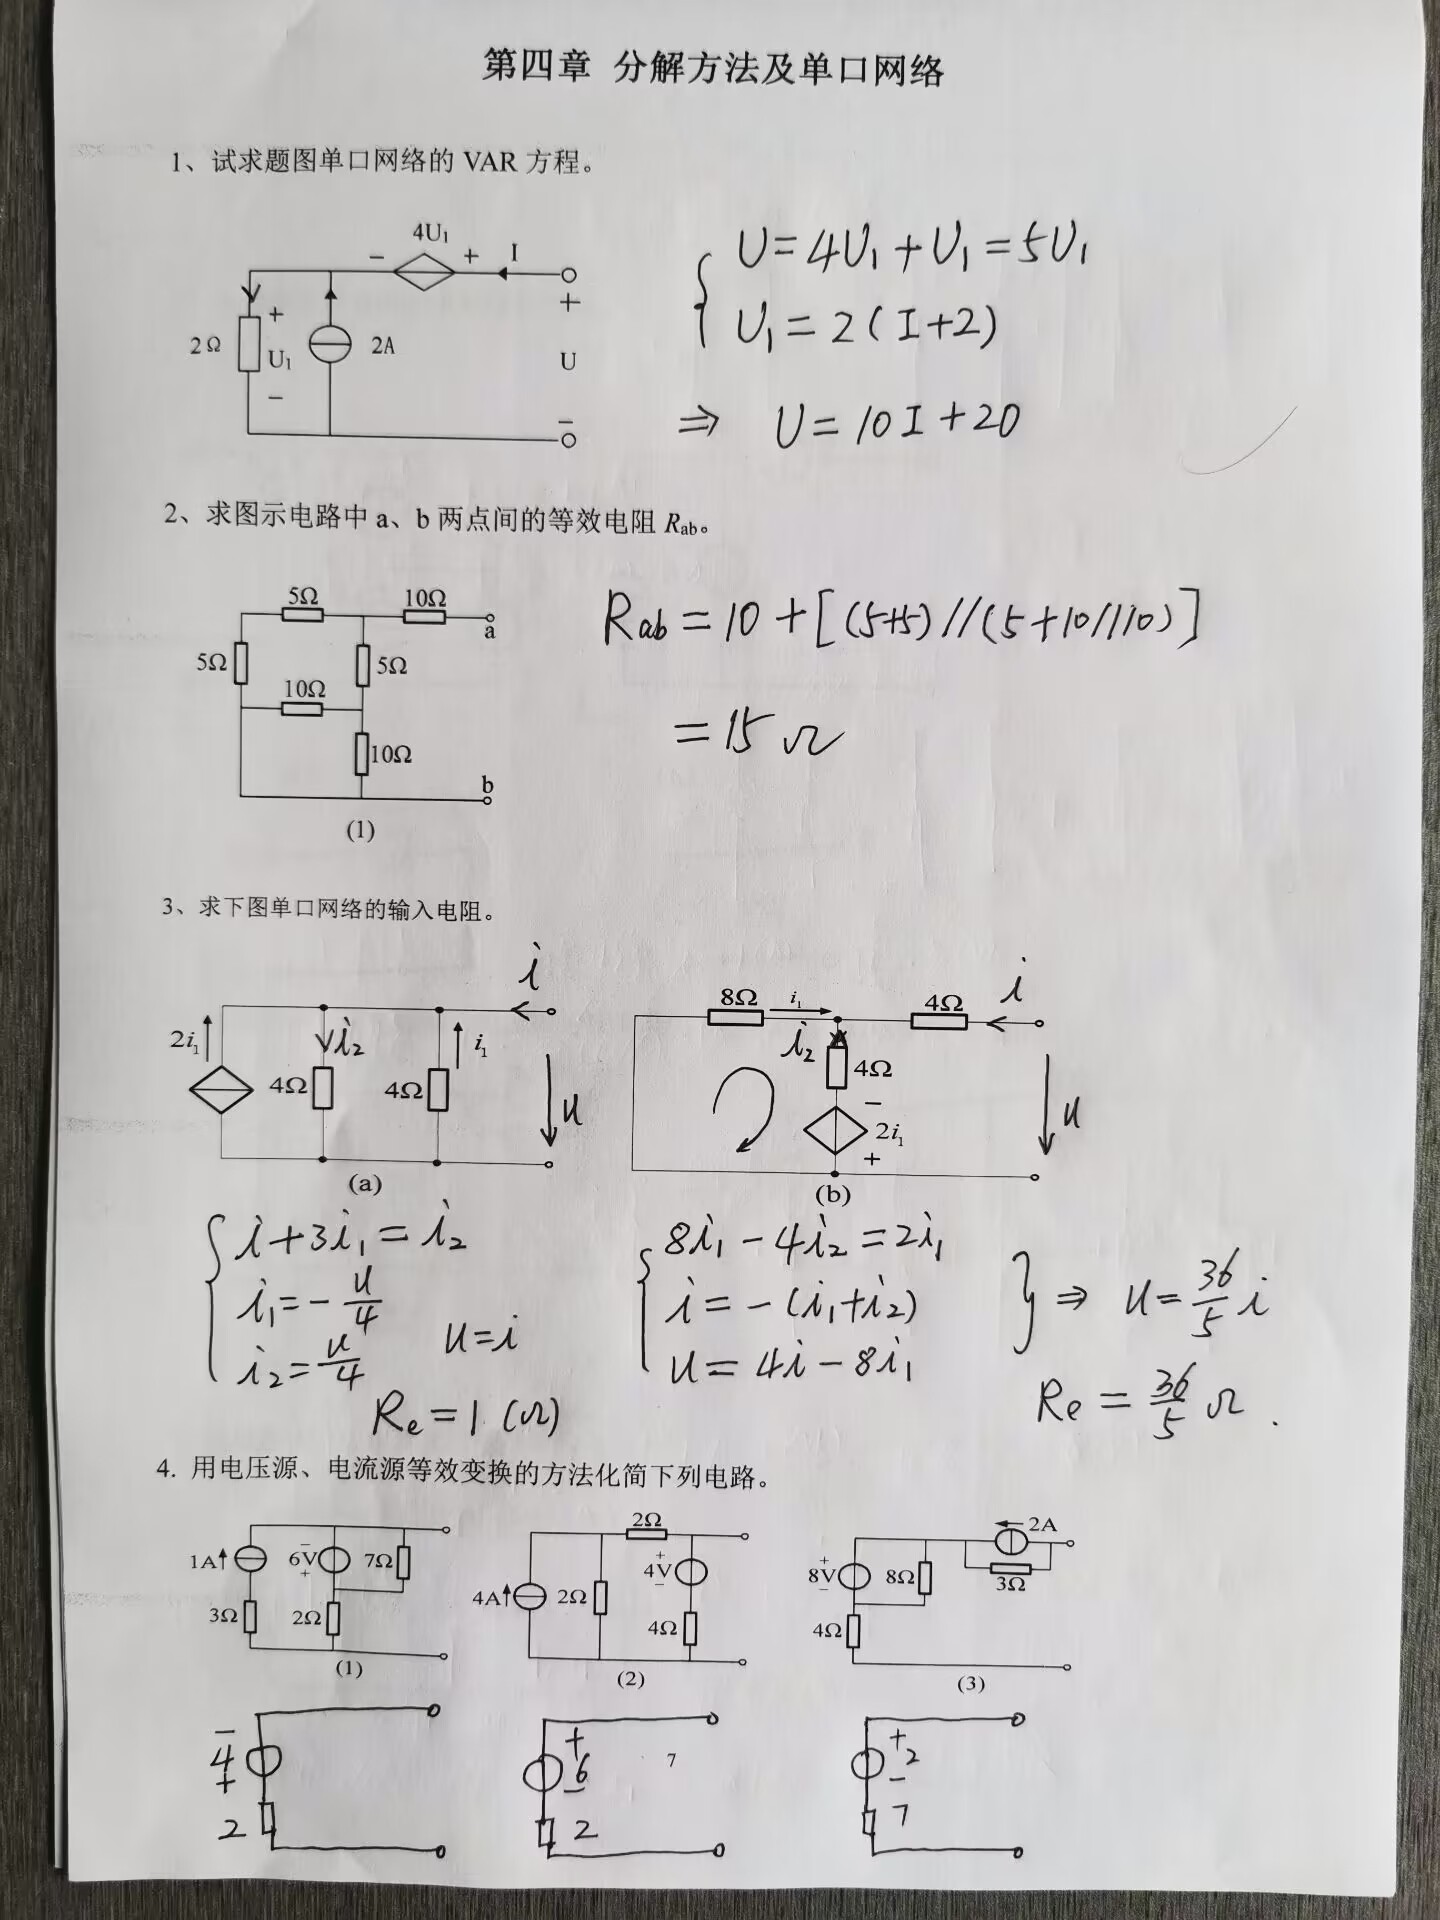 第四章 分解方法及单口网络
1、试求题图单口网络的 VAR 方程。
4U₁
− + I
2Ω + U₁ − 2A + U −
U=4U₁+U₁=5U₁
U₁=2(I+2)
⇒ U=10I+20
2、求图示电路中 a、b 两点间的等效电阻 Rab。
5Ω 10Ω a
5Ω 5Ω
10Ω
10Ω
b
(1)
Rab=10+[(5+5)//(5+10//10)]
=15Ω
3、求下图单口网络的输入电阻。
i
2i₁ i₂ i₁
4Ω 4Ω u
(a)
8Ω i₁ 4Ω i
i₂ 4Ω
− 2i₁ + u
(b)
i+3i₁=i₂
i₁=−u/4
i₂=u/4 u=i
Re=1(Ω)
8i₁−4i₂=2i₁
i=−(i₁+i₂)
u=4i−8i₁
⇒ u=36/5 i
Re=36/5 Ω.
4. 用电压源、电流源等效变换的方法化简下列电路。
1A − 6V + 7Ω
3Ω 2Ω
(1)
2Ω
4A 2Ω + 4V −
4Ω
(2)
2A
+ 8V − 8Ω 3Ω
4Ω
(3)
− 4 +
2
+ 6 −
2
+ 2 −
7
7